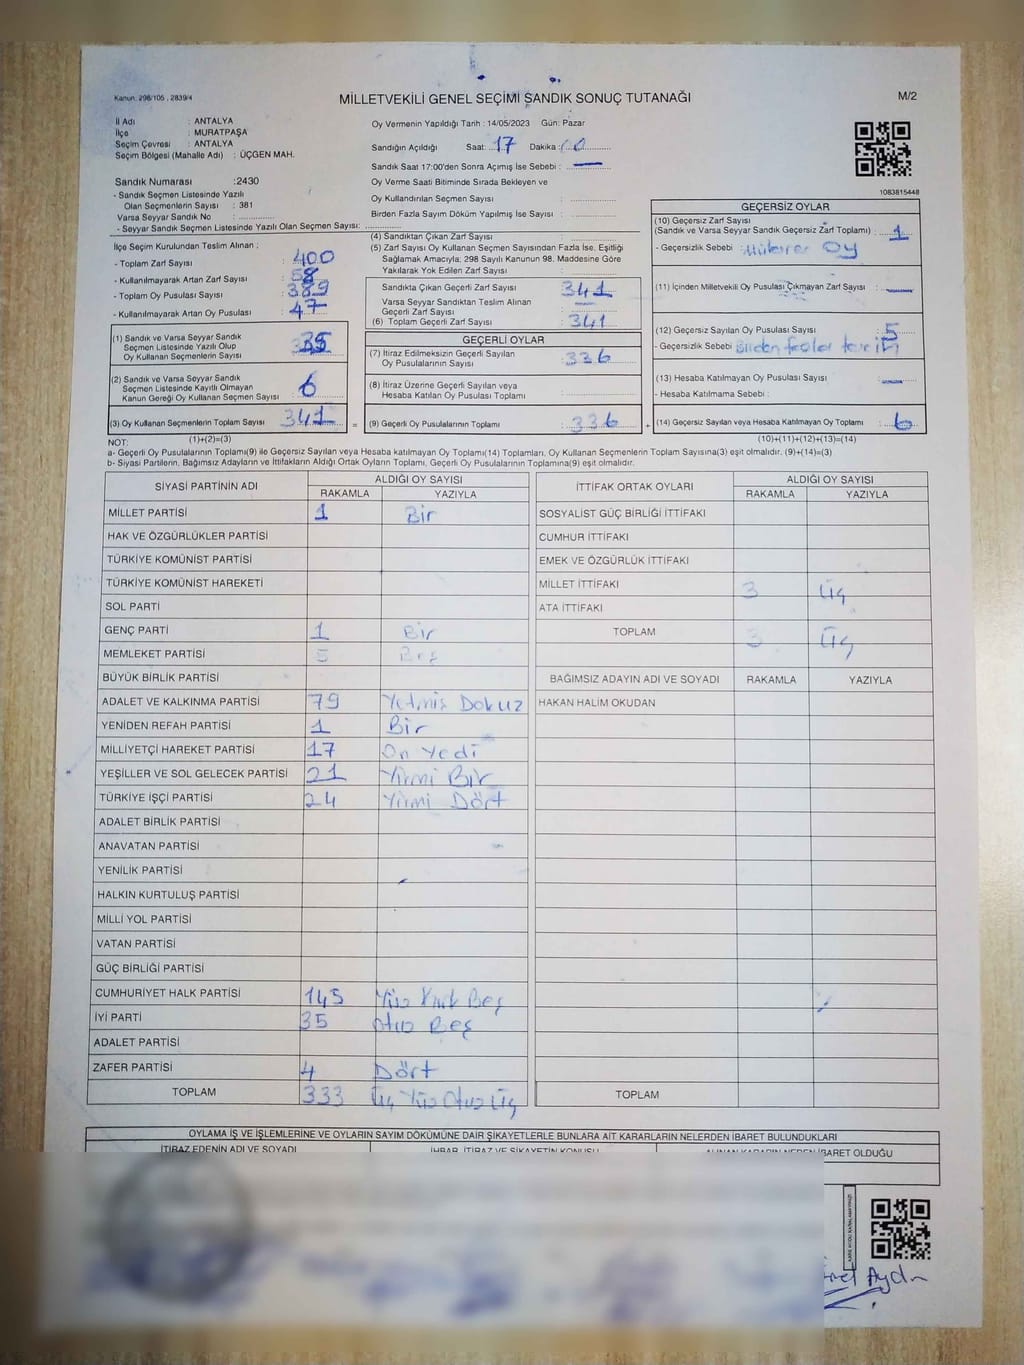 Kanun, 298/105 , 2839/4
MİLLETVEKİLİ GENEL SEÇİMİ SANDIK SONUÇ TUTANAĞI
M/2
İl Adı : ANTALYA
İlçe : MURATPAŞA
Seçim Çevresi : ANTALYA
Seçim Bölgesi (Mahalle Adı) : ÜÇGEN MAH.
Oy Vermenin Yapıldığı Tarih : 14/05/2023 Gün: Pazar
Sandığın Açıldığı Saat: 17 Dakika: 00
Sandık Saat 17:00'den Sonra Açımış İse Sebebi : —
Oy Verme Saati Bitiminde Sırada Bekleyen ve
Oy Kullandırılan Seçmen Sayısı :
Birden Fazla Sayım Döküm Yapılmış İse Sayısı :
1083815448
Sandık Numarası :2430
- Sandık Seçmen Listesinde Yazılı
Olan Seçmenlerin Sayısı : 381
Varsa Seyyar Sandık No :
- Seyyar Sandık Seçmen Listesinde Yazılı Olan Seçmen Sayısı:
İlçe Seçim Kurulundan Teslim Alınan :
- Toplam Zarf Sayısı : 400
- Kullanılmayarak Artan Zarf Sayısı : 58
- Toplam Oy Pusulası Sayısı : 389
- Kullanılmayarak Artan Oy Pusulası : 47
(1) Sandık ve Varsa Seyyar Sandık
Seçmen Listesinde Yazılı Olup
Oy Kullanan Seçmenlerin Sayısı : 335
(2) Sandık ve Varsa Seyyar Sandık
Seçmen Listesinde Kayıtlı Olmayan
Kanun Gereği Oy Kullanan Seçmen Sayısı : 6
(3) Oy Kullanan Seçmenlerin Toplam Sayısı : 341
(4) Sandıktan Çıkan Zarf Sayısı :
(5) Zarf Sayısı Oy Kullanan Seçmen Sayısından Fazla İse, Eşitliği
Sağlamak Amacıyla; 298 Sayılı Kanunun 98. Maddesine Göre
Yakılarak Yok Edilen Zarf Sayısı :
Sandıkta Çıkan Geçerli Zarf Sayısı : 341
Varsa Seyyar Sandıktan Teslim Alınan
Geçerli Zarf Sayısı : —
(6) Toplam Geçerli Zarf Sayısı : 341
GEÇERLİ OYLAR
(7) İtiraz Edilmeksizin Geçerli Sayılan
Oy Pusulalarının Sayısı : 336
(8) İtiraz Üzerine Geçerli Sayılan veya
Hesaba Katılan Oy Pusulası Toplamı :
= (9) Geçerli Oy Pusulalarının Toplamı : 336
GEÇERSİZ OYLAR
(10) Geçersiz Zarf Sayısı
(Sandık ve Varsa Seyyar Sandık Geçersiz Zarf Toplamı) : 1
- Geçersizlik Sebebi : Oy
(11) İçinden Milletvekili Oy Pusulası Çıkmayan Zarf Sayısı : —
(12) Geçersiz Sayılan Oy Pusulası Sayısı : 5
- Geçersizlik Sebebi : Birden fazla tercih
(13) Hesaba Katılmayan Oy Pusulası Sayısı : —
- Hesaba Katılmama Sebebi :
+ (14) Geçersiz Sayılan veya Hesaba Katılmayan Oy Toplamı : 6
NOT: (1)+(2)=(3) (10)+(11)+(12)+(13)=(14)
a- Geçerli Oy Pusulalarının Toplamı(9) ile Geçersiz Sayılan veya Hesaba Katılmayan Oy Toplamı(14) Toplamları, Oy Kullanan Seçmenlerin Toplam Sayısına(3) eşit olmalıdır. (9)+(14)=(3)
b- Siyasi Partilerin, Bağımsız Adayların ve İttifakların Aldığı Ortak Oyların Toplamı, Geçerli Oy Pusulalarının Toplamına(9) eşit olmalıdır.
SİYASİ PARTİNİN ADI ALDIĞI OY SAYISI
RAKAMLA YAZIYLA
MİLLET PARTİSİ 1 Bir
HAK VE ÖZGÜRLÜKLER PARTİSİ
TÜRKİYE KOMÜNİST PARTİSİ
TÜRKİYE KOMÜNİST HAREKETİ
SOL PARTİ
GENÇ PARTİ 1 Bir
MEMLEKET PARTİSİ 5 Beş
BÜYÜK BİRLİK PARTİSİ
ADALET VE KALKINMA PARTİSİ 79 Yetmiş Dokuz
YENİDEN REFAH PARTİSİ 1 Bir
MİLLİYETÇİ HAREKET PARTİSİ 17 On Yedi
YEŞİLLER VE SOL GELECEK PARTİSİ 21 Yirmi Bir
TÜRKİYE İŞÇİ PARTİSİ 24 Yirmi Dört
ADALET BİRLİK PARTİSİ
ANAVATAN PARTİSİ
YENİLİK PARTİSİ
HALKIN KURTULUŞ PARTİSİ
MİLLİ YOL PARTİSİ
VATAN PARTİSİ
GÜÇ BİRLİĞİ PARTİSİ
CUMHURİYET HALK PARTİSİ 145 Yüz Kırk Beş
İYİ PARTİ 35 Otuz Beş
ADALET PARTİSİ
ZAFER PARTİSİ 4 Dört
TOPLAM 333 Üç Yüz Otuz Üç
İTTİFAK ORTAK OYLARI ALDIĞI OY SAYISI
RAKAMLA YAZIYLA
SOSYALİST GÜÇ BİRLİĞİ İTTİFAKI
CUMHUR İTTİFAKI
EMEK VE ÖZGÜRLÜK İTTİFAKI
MİLLET İTTİFAKI 3 Üç
ATA İTTİFAKI
TOPLAM 3 Üç
BAĞIMSIZ ADAYIN ADI VE SOYADI RAKAMLA YAZIYLA
HAKAN HALİM OKUDAN
TOPLAM
OYLAMA İŞ VE İŞLEMLERİNE VE OYLARIN SAYIM DÖKÜMÜNE DAİR ŞİKAYETLERLE BUNLARA AİT KARARLARIN NELERDEN İBARET BULUNDUKLARI
İTİRAZ EDENİN ADI VE SOYADI İHBAR, İTİRAZ VE ŞİKAYETİN KONUSU ALINAN KARARIN NEDEN İBARET OLDUĞU
Aydın